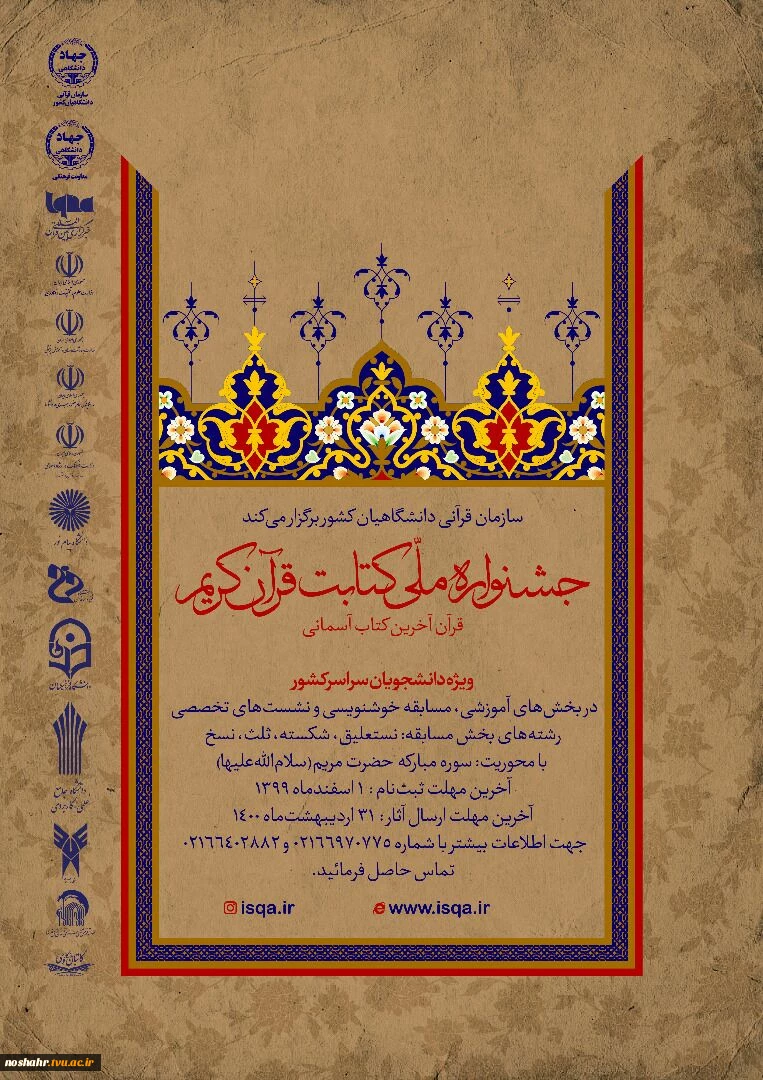 سازمان قرآنی دانشگاهیان کشور برگزار می‌کند
جشنواره ملّی کتابت قرآن کریم
قرآن آخرین کتاب آسمانی
ویژه دانشجویان سراسر کشور
در بخش‌های آموزشی، مسابقه خوشنویسی و نشست‌های تخصصی
رشته‌های بخش مسابقه: نستعلیق، شکسته، ثلث، نسخ
با محوریت: سوره مبارکه حضرت مریم (سلام‌الله‌علیها)
آخرین مهلت ثبت‌نام: ۱ اسفندماه ۱۳۹۹
آخرین مهلت ارسال آثار: ۳۱ اردیبهشت‌ماه ۱۴۰۰
جهت اطلاعات بیشتر با شماره ۰۲۱۶۶۹۷۰۷۷۵ و ۰۲۱۶۶۴۰۲۸۸۲
تماس حاصل فرمائید.
www.isqa.ir
isqa.ir
جهاد
دانشگاهی
سازمان قرآنی
دانشگاهیان کشور
جهاد
دانشگاهی
معاونت فرهنگی
iqna
دانشگاه پیام نور
دانشگاه فرهنگیان
دانشگاه جامع
علمی کاربردی
noshahr.tvu.ac.ir